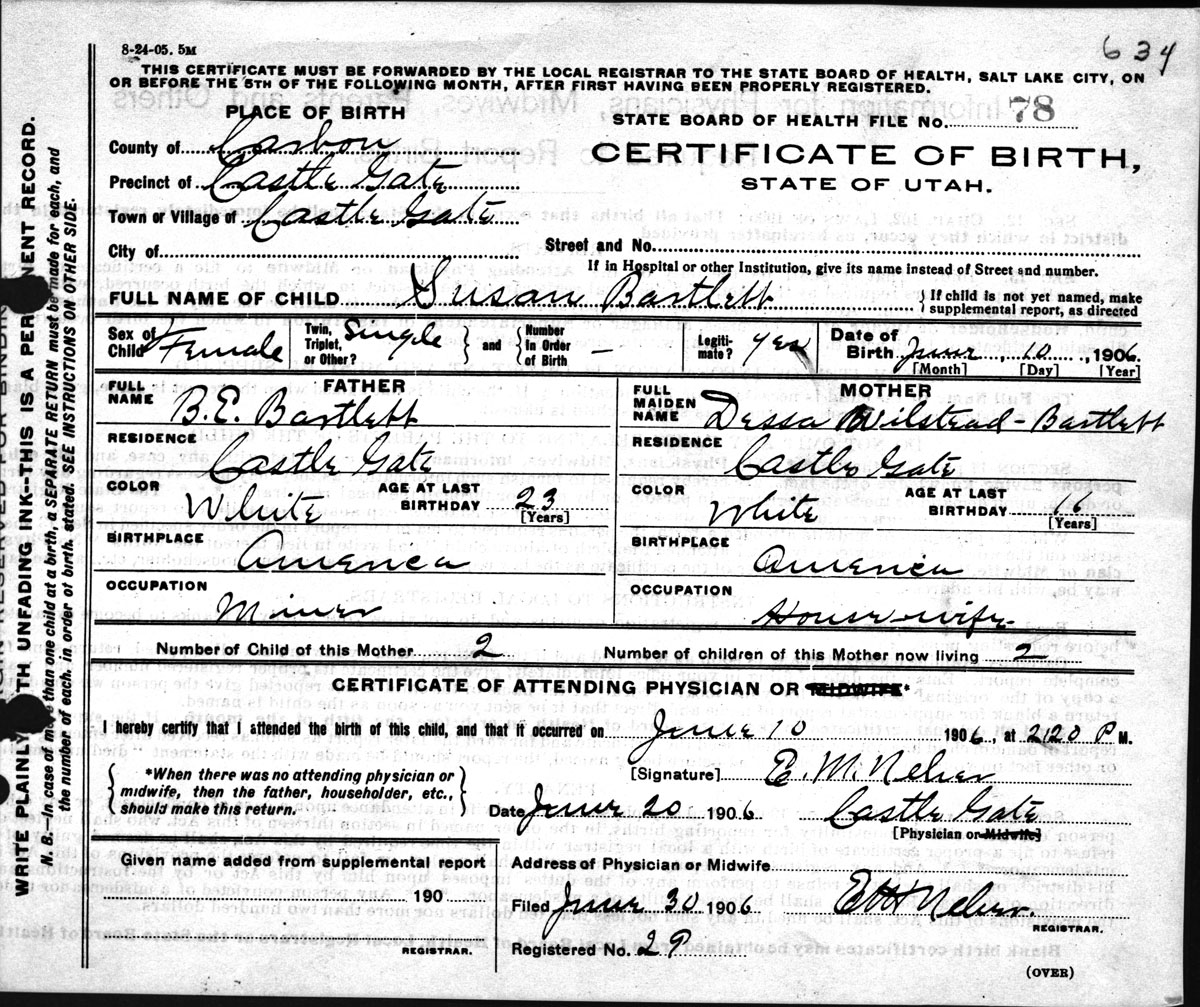 634
8-24-05. 5M
THIS CERTIFICATE MUST BE FORWARDED BY THE LOCAL REGISTRAR TO THE STATE BOARD OF HEALTH, SALT LAKE CITY, ON
OR BEFORE THE 5TH OF THE FOLLOWING MONTH, AFTER FIRST HAVING BEEN PROPERLY REGISTERED.
PLACE OF BIRTH
STATE BOARD OF HEALTH FILE No. 78
County of Carbon
CERTIFICATE OF BIRTH,
Precinct of Castle Gate
STATE OF UTAH.
Town or Village of Castle Gate
City of
Street and No.
If in Hospital or other Institution, give its name instead of Street and number.
FULL NAME OF CHILD Susan Bartlett
If child is not yet named, make
supplemental report, as directed
Sex of Child Female
Twin, Triplet, or Other? Single
and
Number in Order of Birth –
Legiti-mate? yes
Date of Birth June 10, 1906
[Month] [Day] [Year]
FATHER
FULL NAME B.E. Bartlett
MOTHER
FULL MAIDEN NAME Dessa Wilstead-Bartlett
RESIDENCE Castle Gate
RESIDENCE Castle Gate
COLOR White
AGE AT LAST BIRTHDAY 23
[Years]
COLOR White
AGE AT LAST BIRTHDAY 16
[Years]
BIRTHPLACE America
BIRTHPLACE America
OCCUPATION Miner
OCCUPATION House-wife
Number of Child of this Mother 2
Number of children of this Mother now living 2
CERTIFICATE OF ATTENDING PHYSICIAN OR MIDWIFE*
I hereby certify that I attended the birth of this child, and that it occurred on June 10 1906, at 220 P M.
*When there was no attending physician or
midwife, then the father, householder, etc.,
should make this return.
[Signature] E. M. Neher
Date June 20 1906 Castle Gate
[Physician or Midwife]
Given name added from supplemental report
190
REGISTRAR.
Address of Physician or Midwife
Filed June 30 1906
Neher
REGISTRAR.
Registered No. 29
(OVER)
WRITE PLAINLY WITH UNFADING INK--THIS IS A PERMANENT RECORD.
N. B.--In case of more than one child at a birth, a SEPARATE RETURN must be made for each, and
the number of each, in order of birth, stated. SEE INSTRUCTIONS ON OTHER SIDE.